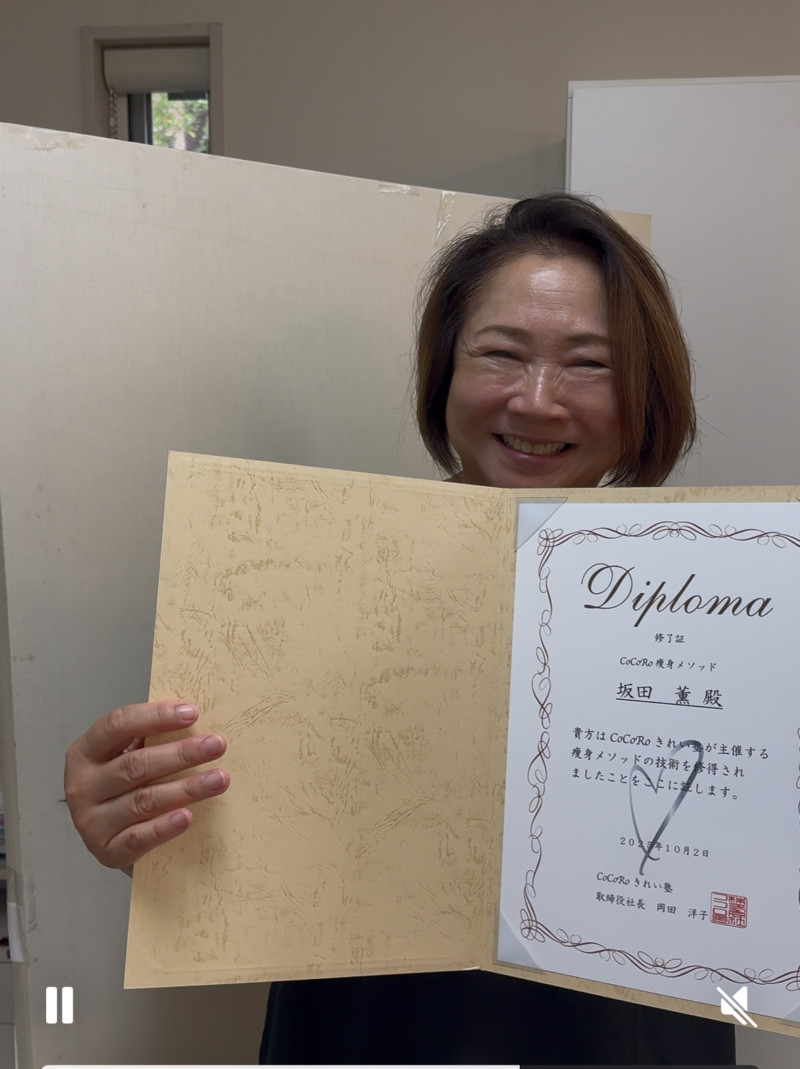 Diploma
修了証
CoCoRo 痩身メソッド
坂田 薫 殿
貴方は CoCoRo きれい塾が主催する
痩身メソッドの技術を修得され
ましたことをここに証します。
2025年10月2日
CoCoRo きれい塾
取締役社長 岡田 洋子